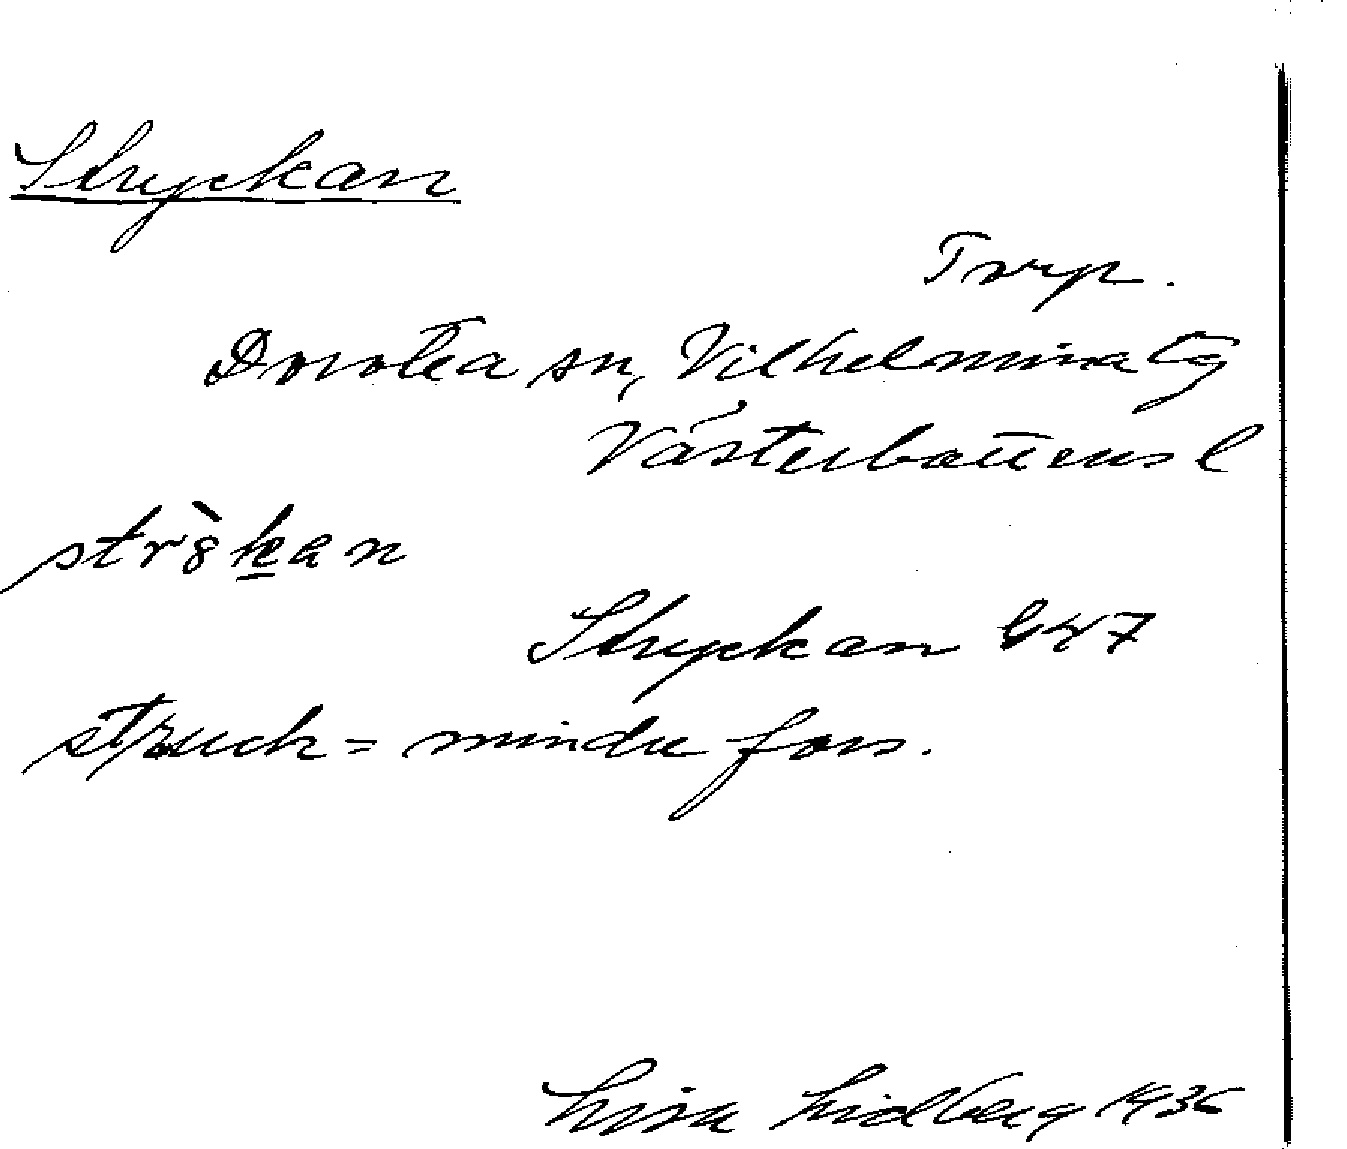 Stryckan
Torp.
Dorotea sn, Vilhelmina tg
Västerbottens l
strö̀kan
Stryckan 647
struck = mindre fors.
Lisa Lidberg 1936